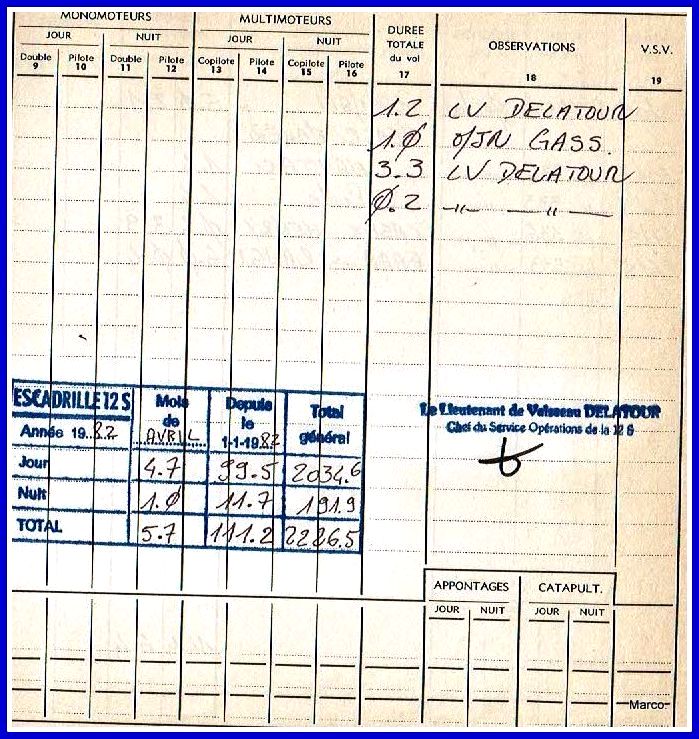 MONOMOTEURS MULTIMOTEURS DUREE TOTALE du vol OBSERVATIONS V.S.V.
JOUR NUIT JOUR NUIT
Double Pilote Double Pilote Copilote Pilote Copilote Pilote
9 10 11 12 13 14 15 16 17 18 19
1.2 LV DELATOUR
1.0 GASS.
3.3 LV DELATOUR
0.2 —"— —"—
ESCADRILLE 12 S Mois de AVRIL Depuis le 1-1-1982 Total général
Année 19.82
Jour 4.7 99.5 2034.6
Nuit 1.0 11.7 191.9
TOTAL 5.7 111.2 2226.5
Le Lieutenant de Vaisseau DELATOUR
Chef du Service Opérations de la 12 S
APPONTAGES CATAPULT.
JOUR NUIT JOUR NUIT
Marco